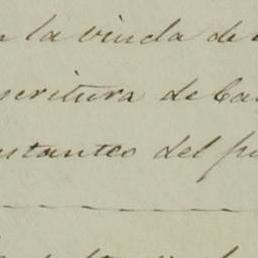 n la viuda de
scritura de Ca
stantes del pu